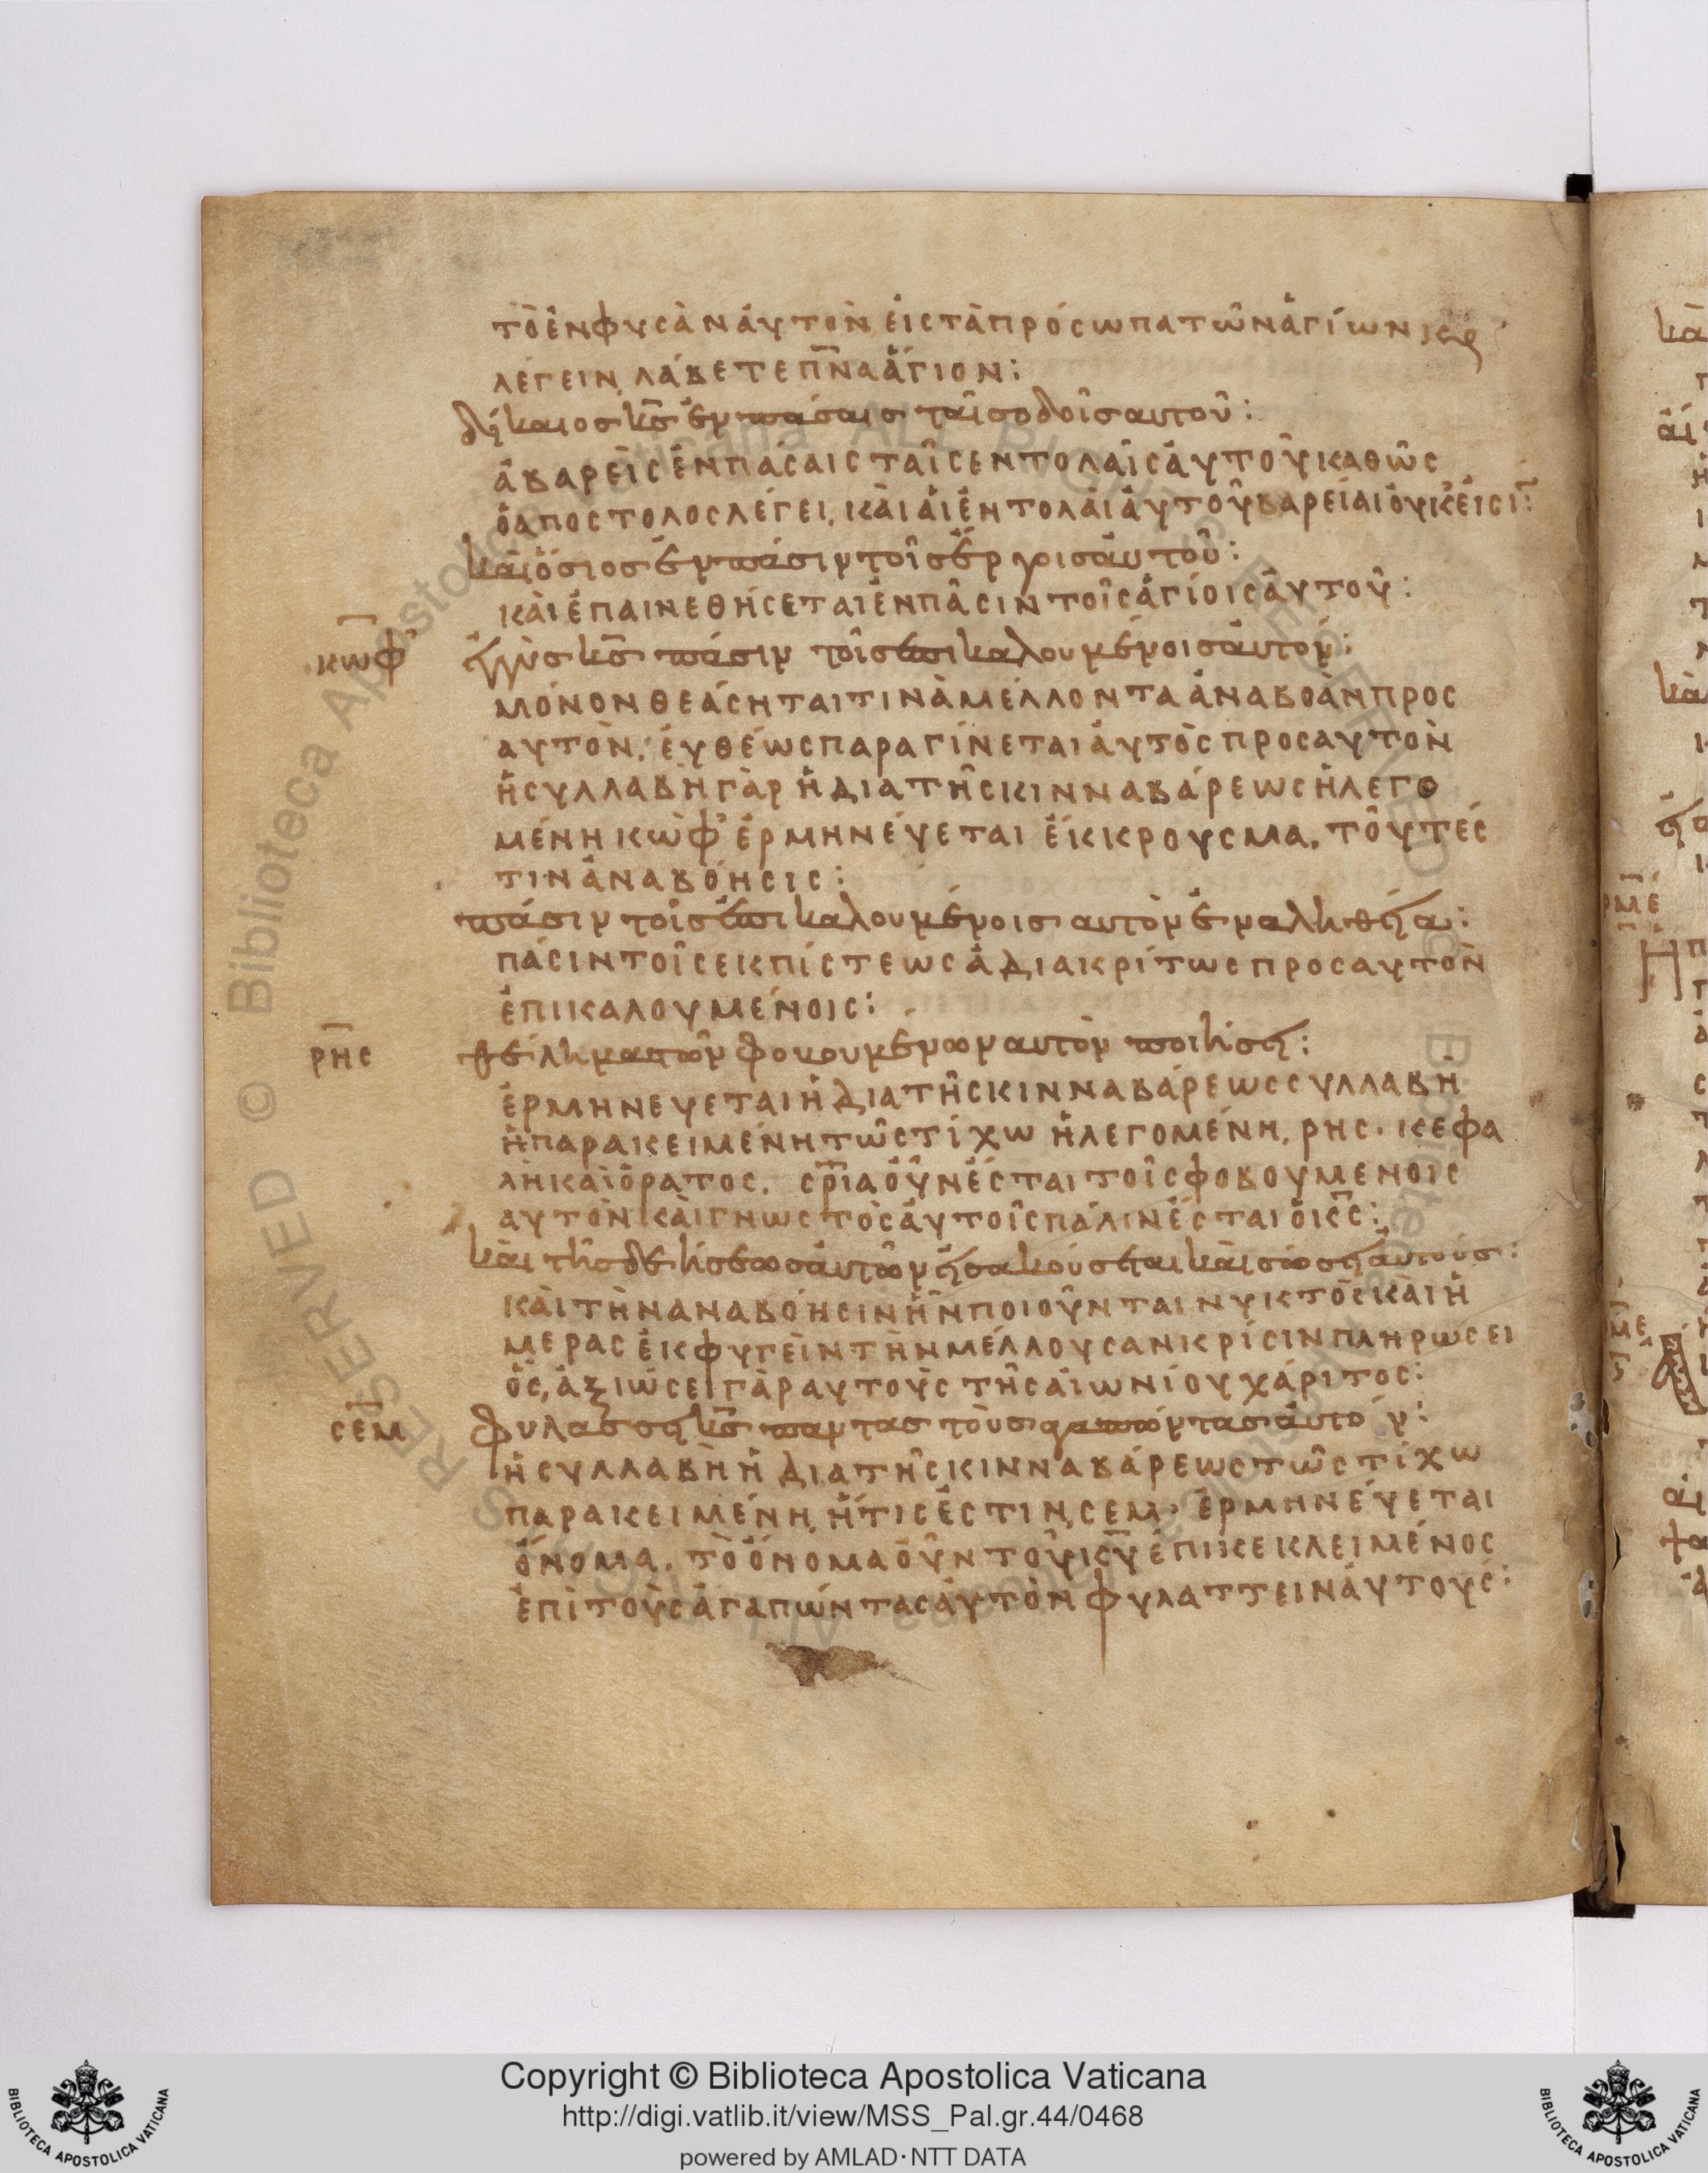 τὸ ἐνφυσᾶν ἀυτὸν ἐις τὰ πρόσωπα τῶν ἁγίων κς
λέγειν, λάβετε πν̅α ἅγιον:
δίκαιος κ̅ς ἐν πάσαις ταῖς οδοῖς αυτοῦ:
ἀβαρεῖς ἐν πάσαις ταῖς εντολαῖς ἀυτοῦ καθὼς
ὁ αποστολος λέγει, κὰι ἁι ἐντολὰι ἀυτοῦ βαρείαι ὀυκ ἐισιν:
κὰι ὅσιος ἐν πάσιν τοῖς ἔργοις ἀυτοῦ:
κὰι ἐπαινεθήσεται ἐν πᾶσιν τοῖς ἁγίοις ἀυτοῦ:
κωφ
ἐγγὺς κ̅ς πάσιν τοῖς ἐπικαλουμένοις ἀυτον:
μόνον θεάσηται τινὰ μέλλοντα ἀναβοὰν προς
αυτὸν, ἐυθέως παραγίνεται ἀυτὸς προς αυτὸν
ἡ συλλαβὴ γὰρ ἡ δια τῆς κινναβάρεως ἡ λεγο
μένη κὼφ ἑρμηνέυεται ἔκκρουσμα, τοῦτέσ
τιν ἀναβόησις:
πάσιν τοῖς ἐπικαλουμένοις αυτὸν ἐν αληθεία:
πάσιν τοῖς εκ πίστεως ἀδιακρίτως προς αυτὸν
ἐπικαλουμένοις:
ρης
θέλημα τῶν φοβουμένων αυτὸν ποιήσει:
ἑρμηνευεται ἡ δια τῆς κινναβάρεως συλλαβὴ
ἡ παρακειμένη τῶ στίχω ἡ λεγομένη, ρης. κεφα
λὴ και ὅρατος. σ̅ρ̅ια οὖν ἔσται τοῖς φοβουμενοις
αυτὸν κὰι γνωστὸς ἀυτοῖς πάλιν ἔσται ὁ κ̅ς:
κὰι τῆς δεήσεως ἀυτῶν ἐισακούσεται κὰι σώσει ἀυτούς:
κὰι τὴν αναβόησιν ἣν ποιοῦνται νυκτὸς κὰι ἡ
μερας ἐκφυγεῖν τὴν μέλλουσαν κρίσιν πληρώσει
ὁς, ἀξιώσει γὰρ αυτοὺς τῆς ἀιωνίου χάριτος:
σεμ
φυλάσσει κ̅ς παντας τοὺς αγαπώντας ἀυτόν:
ἡ συλλαβὴ ἡ δια τῆς κινναβάρεως τῶ στίχω
παρακειμένη, ἥτις ἐστιν, σεμ. ἑρμηνέυεται
ὄνομα. τὸ ὄνομα οὖν τοῦ κ̅υ ἐπικεκλειμένος
ἐπὶ τοὺς ἀγαπώντας ἀυτὸν φυλαττειν ἀυτους:
Copyright © Biblioteca Apostolica Vaticana
http://digi.vatlib.it/view/MSS_Pal.gr.44/0468
powered by AMLAD·NTT DATA
BIBLIOTECA APOSTOLICA VATICANA
BIBLIOTECA APOSTOLICA VATICANA